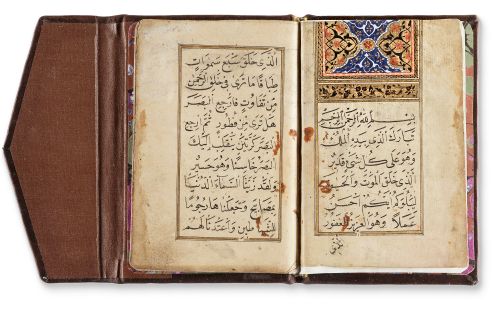 بسم الله الرحمن الرحيم
تبارك الذي بيده الملك
وهو على كل شيء قدير
الذي خلق الموت والحيوة
ليبلوكم ايكم احسن
عملا وهو العزيز الغفور
الذي خلق سبع سموات
طباقا ما ترى في خلق الرحمن
من تفاوت فارجع البصر
هل ترى من فطور ثم ارجع
البصر كرتين ينقلب اليك
البصر خاسئا وهو حسير
ولقد زينا السماء الدنيا
بمصابيح وجعلناها رجوما
للشياطين واعتدنا لهم